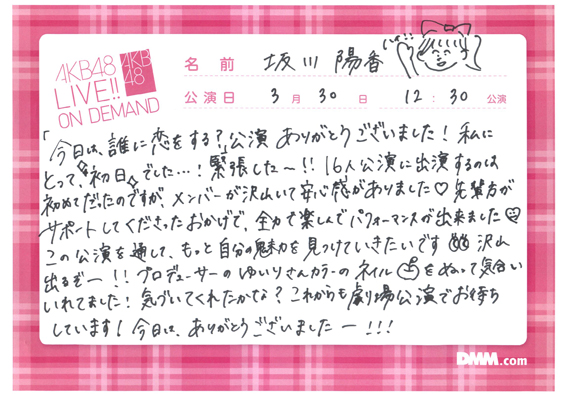 AKB48
LIVE!!
ON DEMAND
AKB
48
名前 坂川 陽香
公演日 3月30日 12:30公演
「今日は、誰に恋をする?」公演 ありがとうございました! 私に
とって、初日でした…! 緊張した〜!! 16人公演に出演するのは
初めてだったのですが、メンバーが沢山いて安心感がありました♡ 先輩方が
サポートしてくださったおかげで、全力で楽しんでパフォーマンスが出来ました♡
この公演を通して、もっと自分の魅力を見つけていきたいです 沢山
出るぞー!! プロデューサーのゆいりさんカラーのネイルをぬって気合い
いれてました! 気づいてくれたかな? これからも劇場公演でお待ち
しています! 今日は、ありがとうございましたー!!!
DMM.com